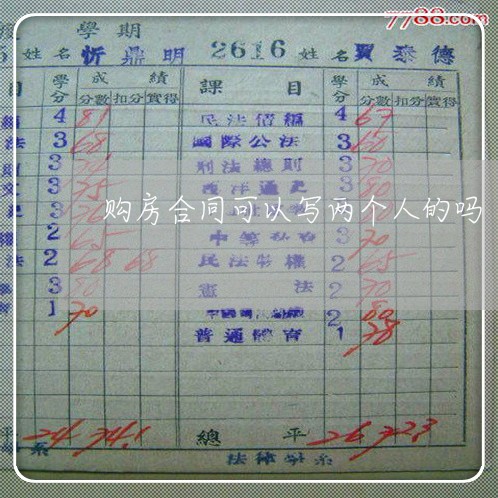 7788.com
學期
姓名 忻鼎明 2616 姓名 賈泰德
目 學分 成績 課目 學分 成績
分數 扣分 實得 分數 扣分 實得
4 81 民法債編 4 67
法 3 68 國際公法 3 60
3 刑法總則 3 70
3 75 西洋通史 3 80
购房合同可以写两个人的吗
2 65 3 70
法 2 68 68 民法物權 2 65
3 80 憲法 2 70
1 70 2 80
普通體育 1 78
平 24 74.1 總平 26 72.3
系 法律學系